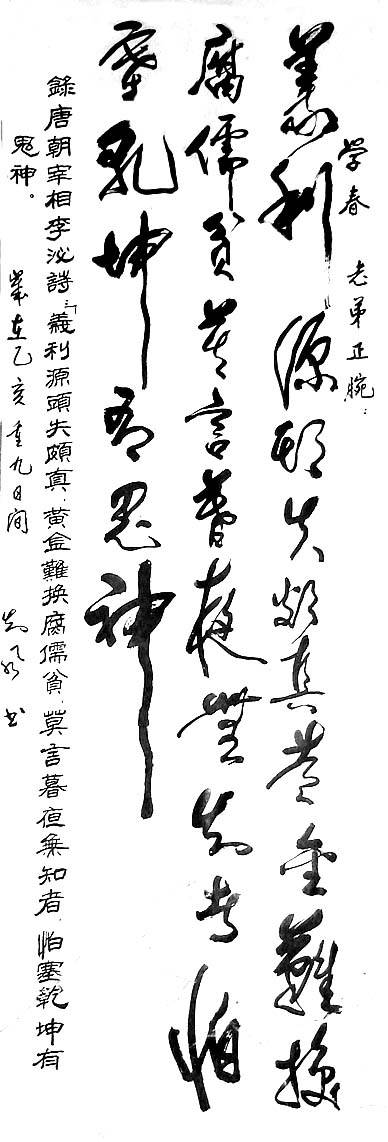 学春 老弟正腕：
義利源頭失頗真黄金難換
腐儒貧莫言暮夜無知者怕
塞乾坤有鬼神
錄唐朝宰相李泌詩：「義利源頭失頗真，黄金難换腐儒貧，莫言暮夜無知者，怕塞乾坤有
鬼神。
歲在乙亥重九日间 书